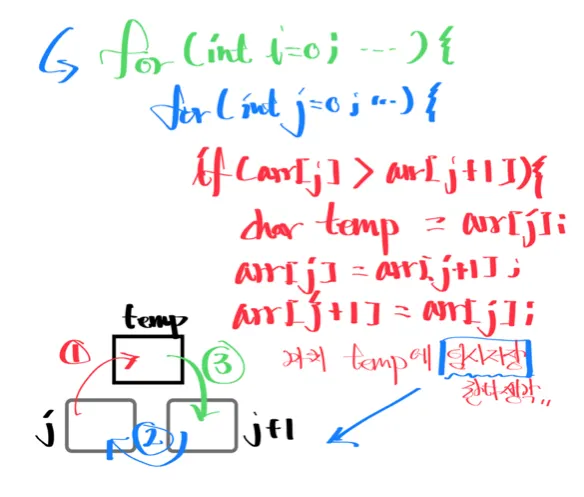 for (int i=0; ...) {
for (int j=0; ...) {
if (arr[j] > arr[j+1]) {
char temp = arr[j];
arr[j] = arr[j+1];
arr[j+1] = arr[j];
temp에 임시저장
temp
① ③
j ② j+1